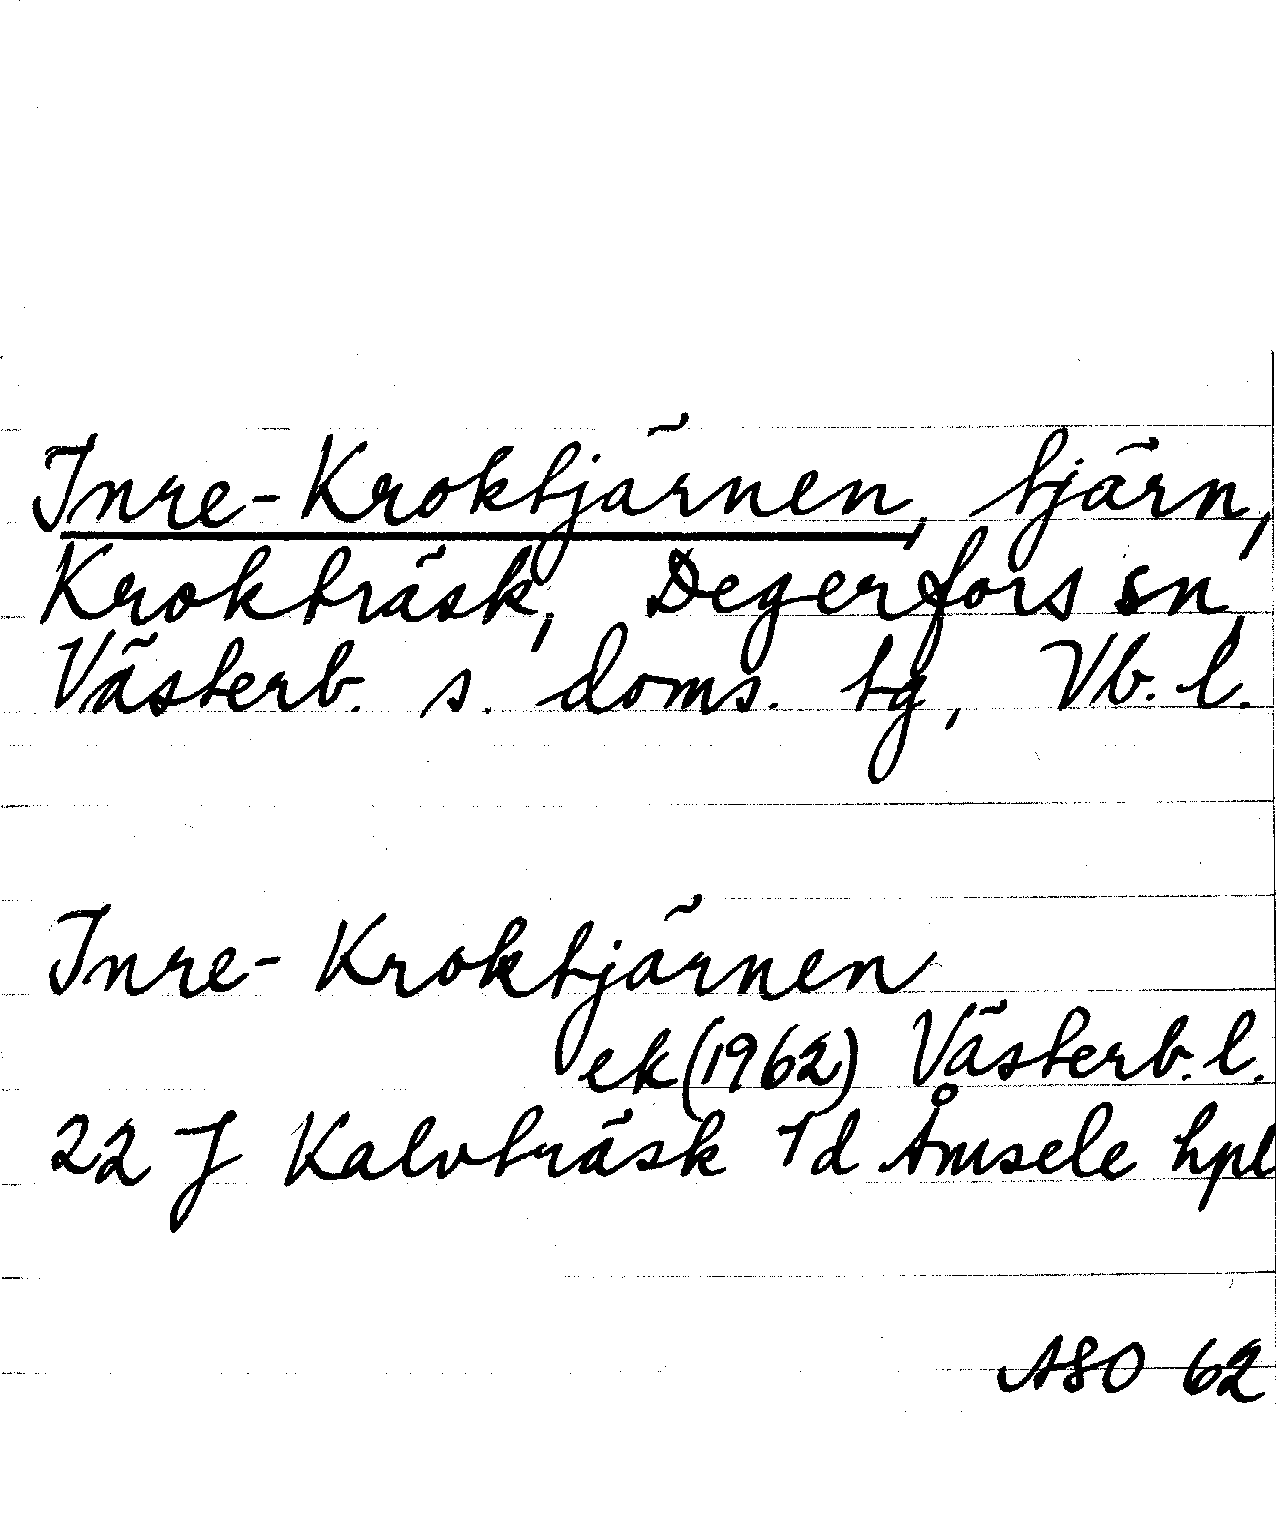 Inre-Kroktjärnen, tjärn,
Krokträsk, Degerfors sn,
Västerb. s. doms. tg, Vb. l.
Inre-Kroktjärnen
ek (1962) Västerb. l.
22 J Kalvträsk 1d Åmsele hpl
ASO 62